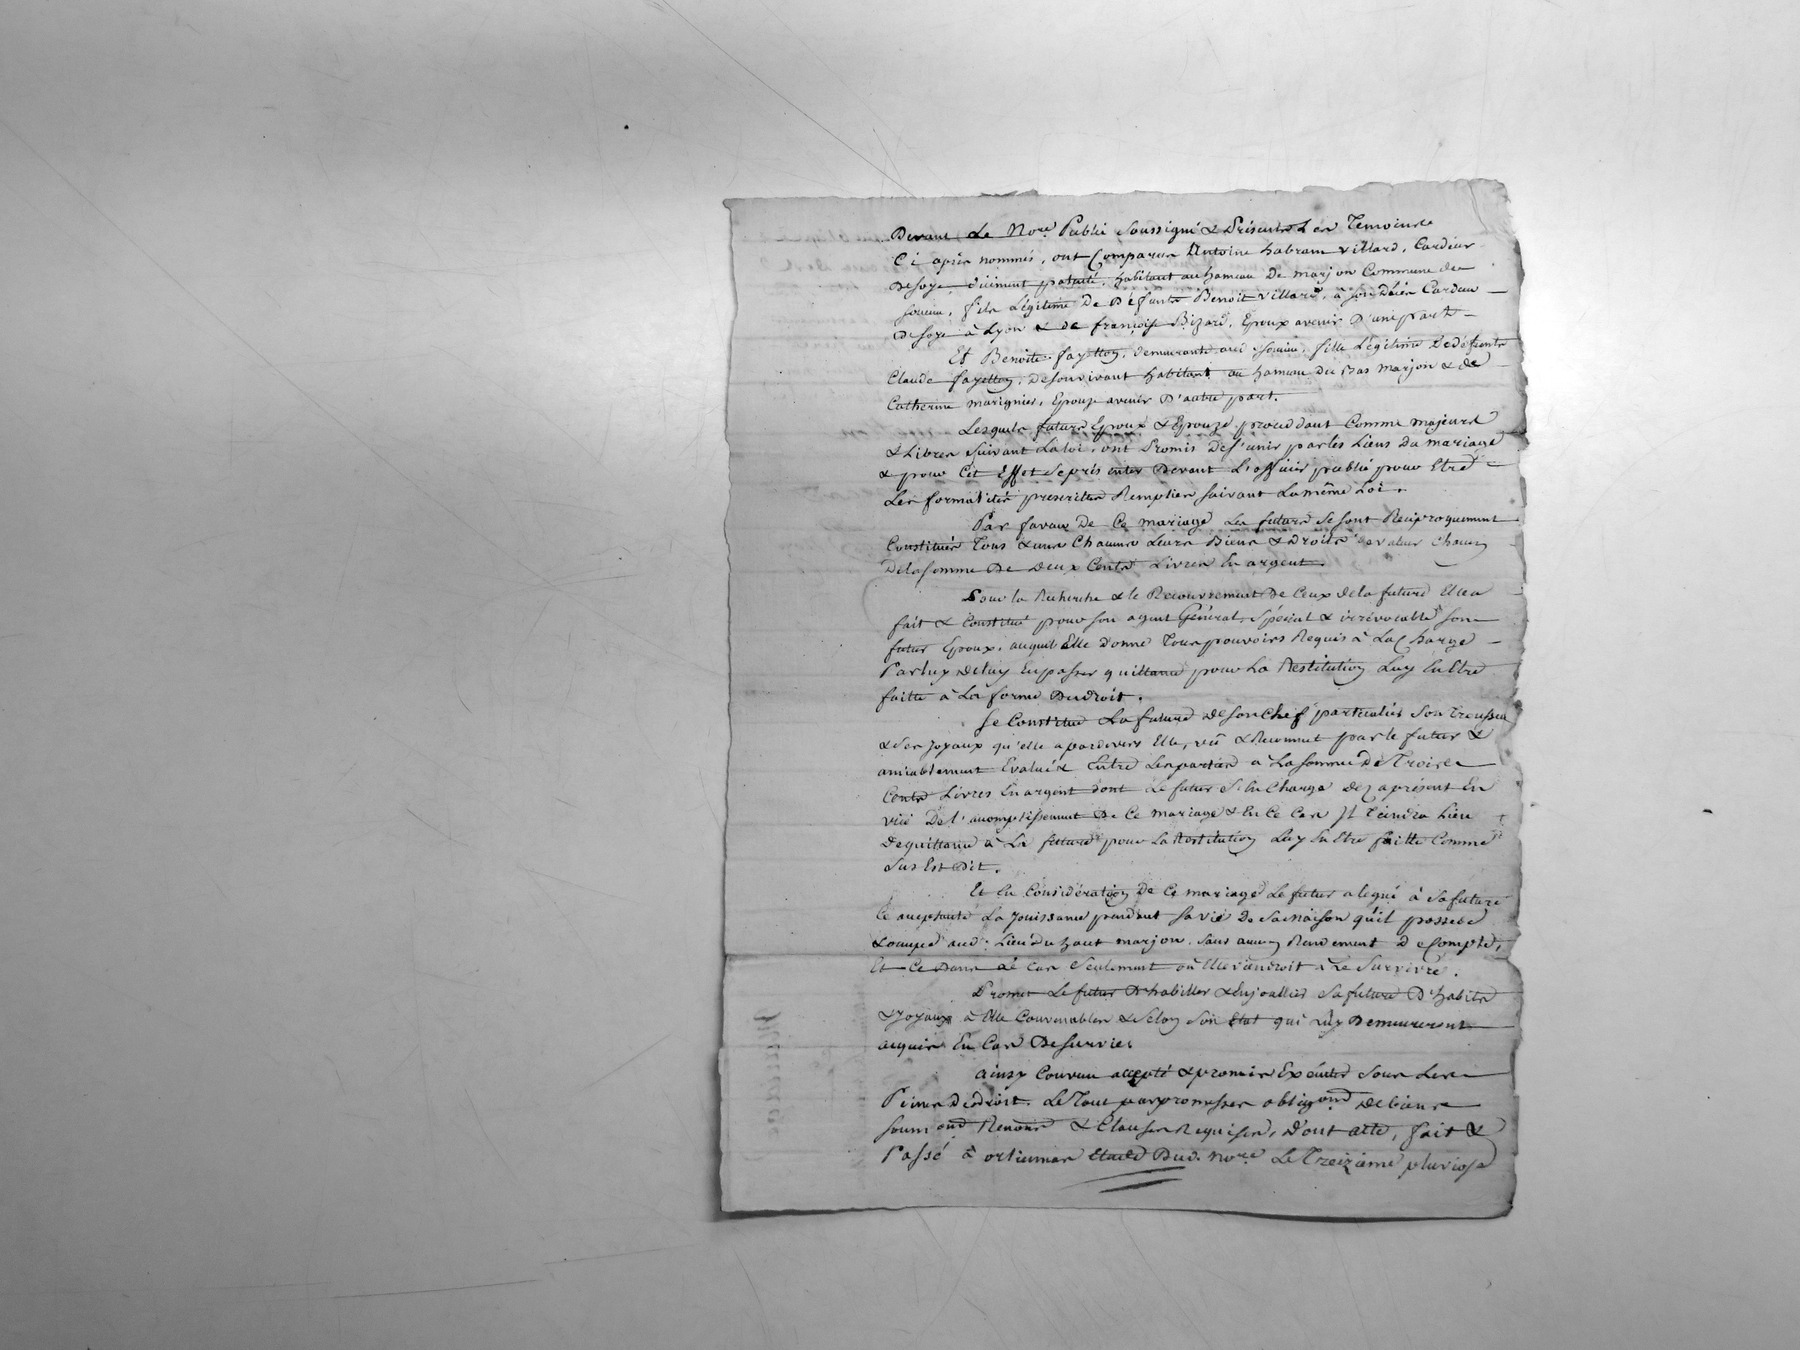 Devant Le No.re Public Soussigné & Présents Les Temoins
Ci après nommés, ont Comparus Antoine habram villard, Cardeur
De soye, düiment patenté, habitant au hameau De marjon Commune de
fils Légitime De Défunts Benoit villard, à son Décès Cardeur
De soye à Lyon & de françoise Bizard, Epoux avenir D'une part
Et Benoite fayetton, demeurante fille Légitime De défunts
Claude fayetton, De son vivant habitant au hameau Du Bas marjon & de
Catherine marignier, Epouse avenir D'autre part.
Lesquels futurs Epoux & Epouze procedant Comme majeurs
& Libres Suivant La loi, ont Promis De s'unir par les Liens Du mariage
& pour Cet Effet Se présenter Devant L'officier public pour Etre
Les formalités prescrites Remplies suivant La même Loi.
Par faveur De Ce mariage Les futurs se sont Reciproquement
Constitués Tous & uns Chacuns Leurs Biens & Droits de valeur chacun
De la somme De Deux Cents Livres En argent.
Pour la Recherche & le Recouvrement De Ceux de la future Elle a
fait & Constitué pour son agent Général, Spécial & irrévocable son
futur Epoux, auquel Elle donne Tous pouvoirs Requis à La Charge
Par luy De luy En passer quittance pour La Restitution Luy En Etre
faitte à La forme Du Droit.
Se Constitue La future De son Chef particulier Son Trousseau
& Ses Joyaux qu'elle a pardevers Elle, vû & Reconnut par le futur &
amiablement Evalués Entre Les parties à La somme De Trois
Cents Livres En argent dont Le futur S'En Charge Dez aprésent En
vüe De l'accomplissement De Ce mariage & En Ce Cas Il Tiendra Lieu
De quittance à La future pour La Restitution Luy En Etre faitte Comme
Sus Est Dit.
Et En Considération De Ce mariage Le futur a legué à Sa future
Ce acceptante La Jouissance pendant Sa vie De Sa maison qu'il possede
& occupe aud. Lieu Du haut marjon, Sans aucun Rendement De Compte,
Et Ce Dans Le Cas Seulement où Elle viendroit à Le Survivre.
Promet Le futur D'habiller & Enjoailler Sa future D'habits
& Joyaux à Elle Convenables & Selon Son Etat qui Luy Demeureront
acquis En Cas De Survie.
ainsy Convenu accepté & promis Exécuter Sous Les
Peines De droit. Le Tout par promesses oblig.ond De biens
soum.ond Renond & Clauses Requises, D'ont acte, fait &
Passé à ortiennas Etude Dud. No.re Le Treizième pluviose